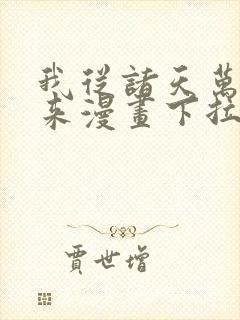 我從諸天萬
来漫畫下拉
賈世增